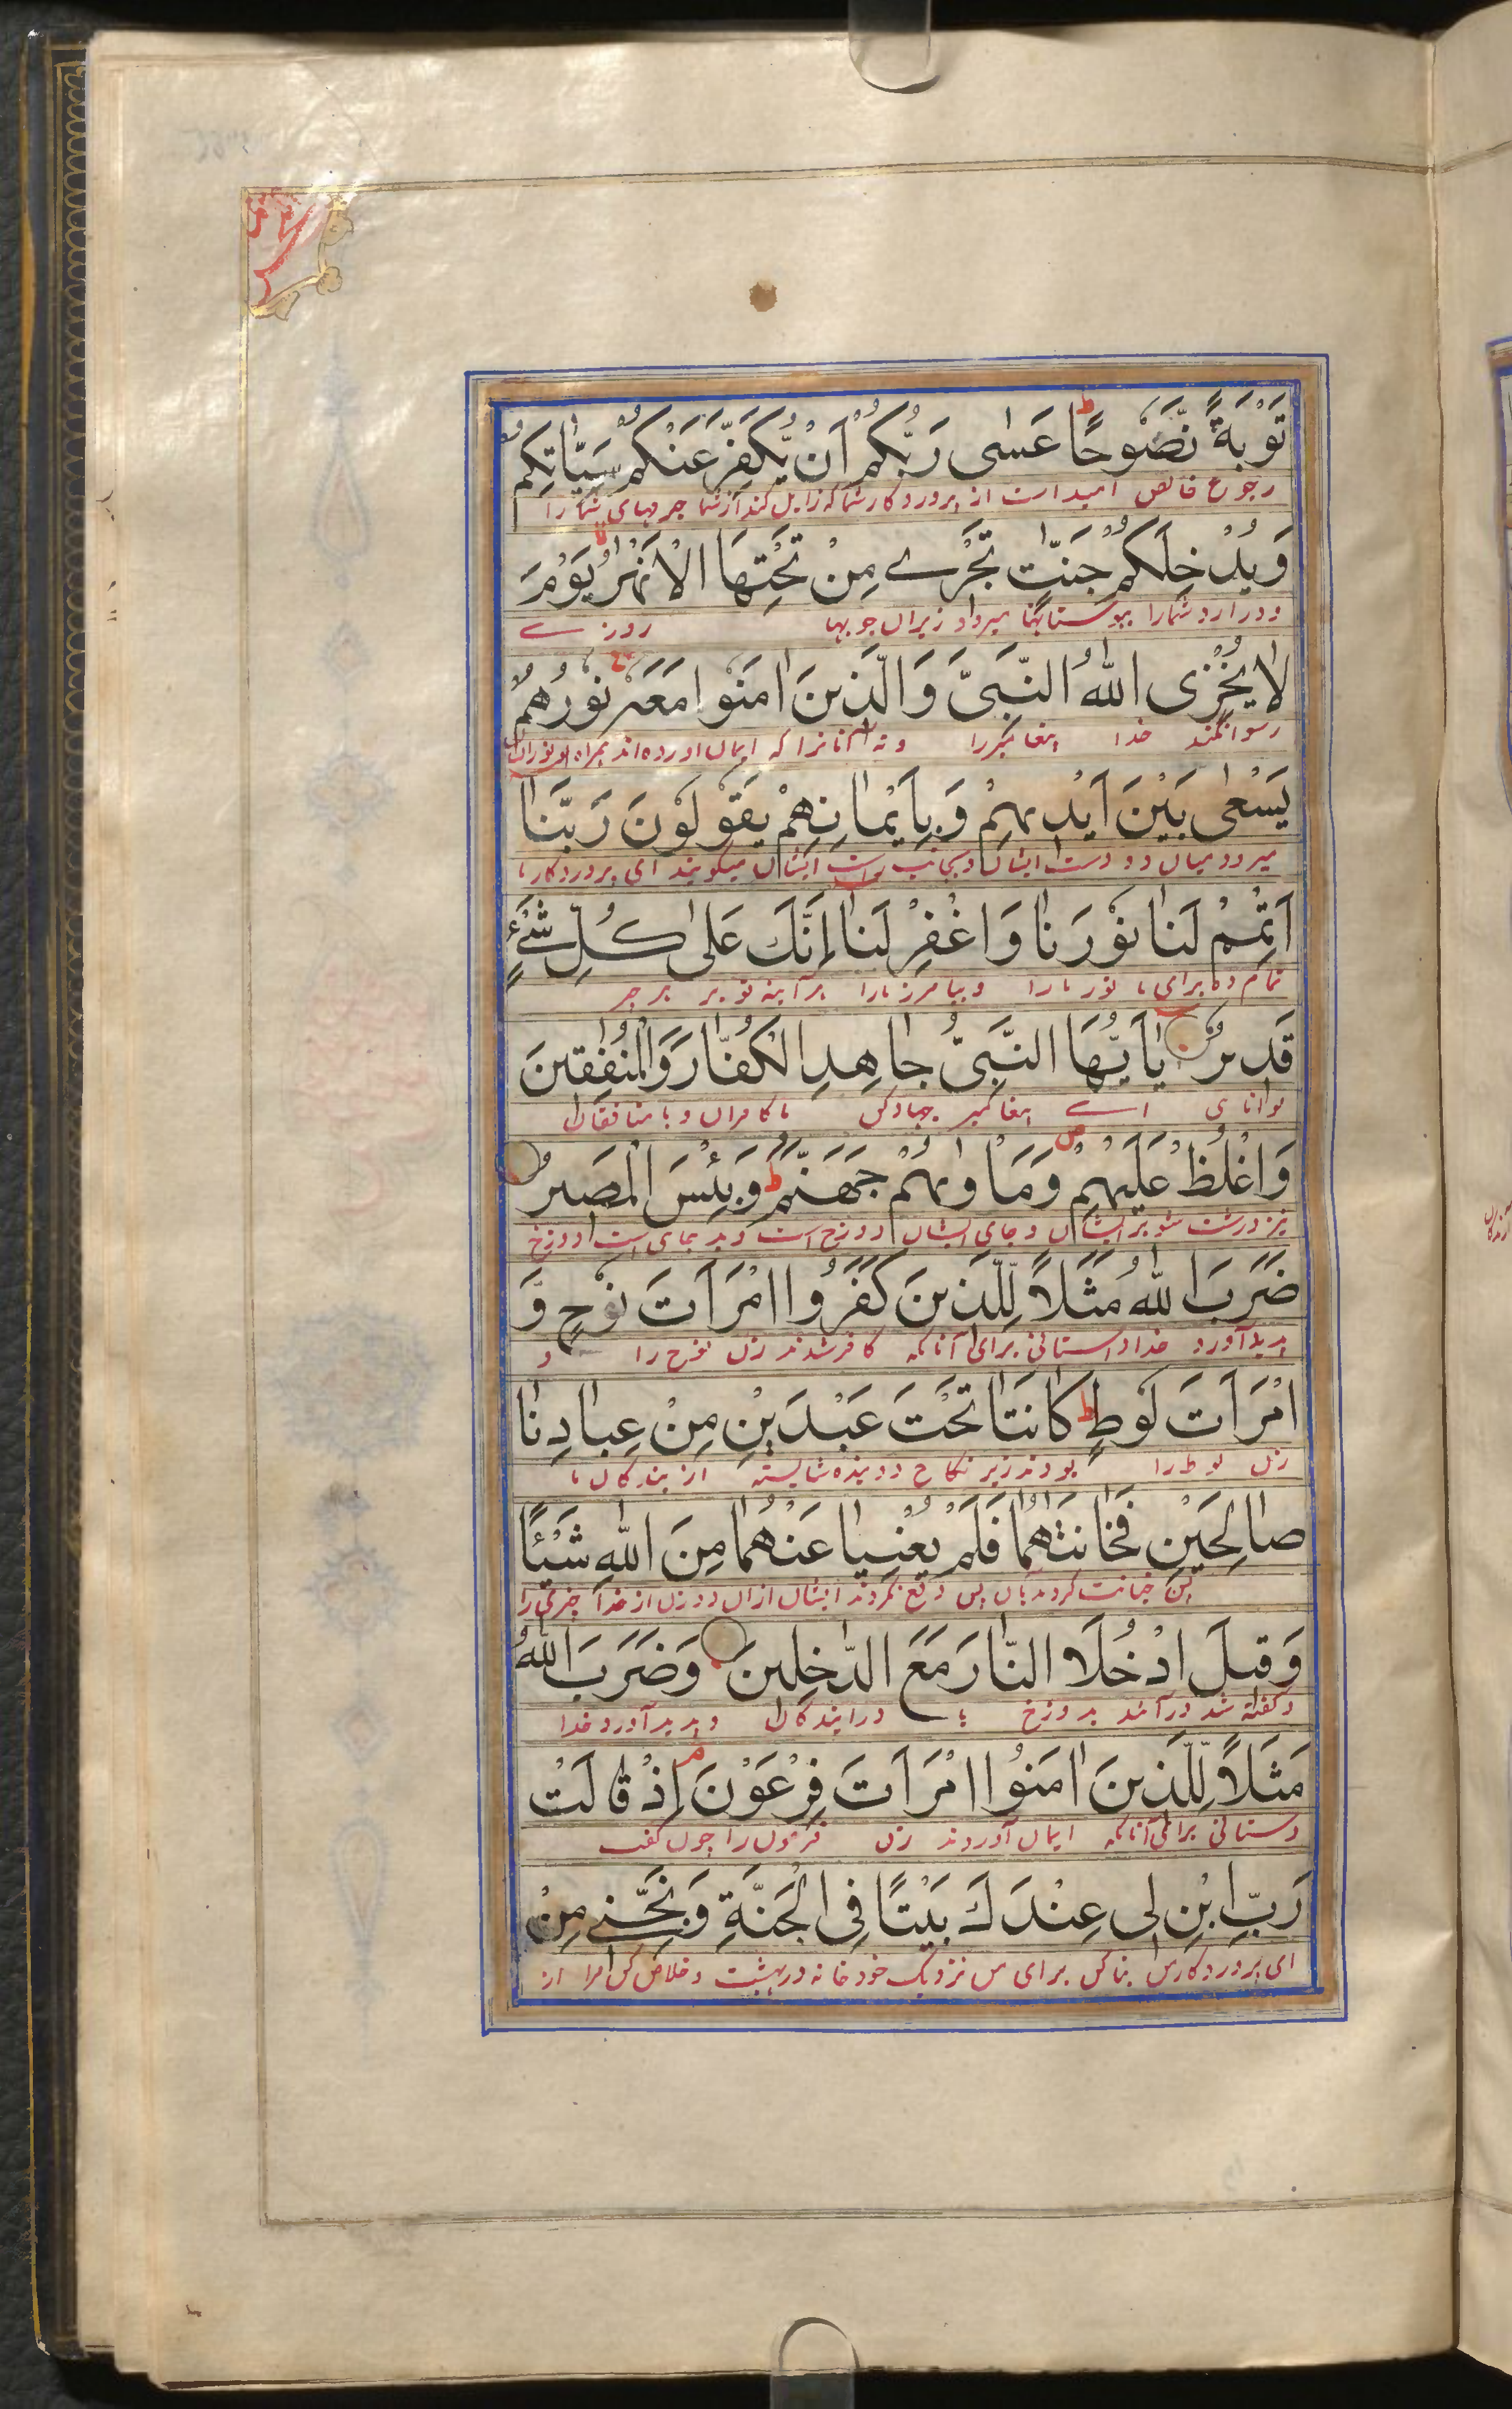 تَوْبَةً نَّصُوحًا ط عَسٰى رَبُّكُمْ اَنْ يُّكَفِّرَ عَنْكُمْ سَيِّاٰتِكُمْ
رجوع خالص امیدارست از پروردکار شما که زایل کند از شما جرمهای شما را
وَيُدْخِلَكُمْ جَنّٰتٍ تَجْرے مِنْ تَحْتِهَا الْاَنْهٰرُ يَوْمَ
و درارد شمارا ببوستانها میرود زیران جویها روزے
لا يُخْزِى اللّٰهُ النَّبِىَّ وَالَّذينَ اٰمَنُوا مَعَهُ نُورُهُمْ
رسوا نکند خدا پیغامبر را و نه آنانرا که ایمان اورده اند همراه او نور
يَسْعٰى بَيْنَ اَيْديهِمْ وَبِاَيْمانِهِمْ يَقُولُونَ رَبَّنٰا
میرود میان دو دست ایشان و بجانب راست ایشان میکویند ای پروردکار ما
اَتْمِمْ لَنٰا نُورَنٰا وَاغْفِرْ لَنٰا اِنَّكَ عَلٰى كُلِّ شَىْءٍ
تمام ده برای ما نور مارا و بیامرز مارا هرآینه تو بر هر
قَديرٌ يٰا اَيُّهَا النَّبِىُّ جٰاهِدِ الْكُفّٰارَ وَالْمُنٰفِقينَ
توانای اے پیغامبر جهاد کن با کافران و با منافقان
وَاغْلُظْ عَلَيْهِمْ ص وَمَاْوٰيهُمْ جَهَنَّمُ ط وَبِئْسَ الْمَصيرُ
درشت شو بر ایشان و جای ایشان دوزخ است و بد جای است دوزخ
ضَرَبَ اللّٰهُ مَثَلاً لِلَّذينَ كَفَرُوا امْرَاَتَ نُوحٍ وَ
پدید آورد خدا داستانی برای آنانکه کافر شدند زن نوح را و
امْرَاَتَ لُوطٍ ط كٰانَتٰا تَحْتَ عَبْدَيْنِ مِنْ عِبٰادِنٰا
زن لوط را بودند زیر نکاح دو بنده شایسته از بندکان ما
صٰالِحَيْنِ فَخٰانَتٰهُمٰا فَلَمْ يُغْنِيٰا عَنْهُمٰا مِنَ اللّٰهِ شَيْئًا
پس خیانت کردند بآن پس دفع نکردند ایشان ازان دو زن از خدا چیزی را
وَقيلَ ادْخُلَا النّٰارَ مَعَ الدّٰخِلينَ وَضَرَبَ اللّٰهُ
و کفته شد درآئید بدوزخ با درایندکان و پدید آورد خدا
مَثَلاً لِلَّذينَ اٰمَنُوا امْرَاَتَ فِرْعَوْنَ م اِذْ قٰالَتْ
دستانی برای آنانکه ایمان آوردند زن فرعون را چون کفت
رَبِّ ابْنِ لى عِنْدَكَ بَيْتًا فِى الْجَنَّةِ وَنَجِّنے مِنْ
ای پروردکار من بنا کن برای من نزدیک خود خانه در بهشت و خلاص کن مرا از